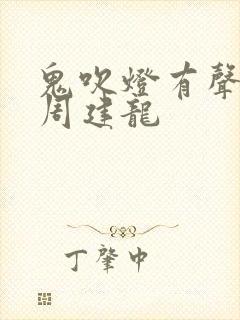 鬼吹燈有聲
周建龍
丁肇中